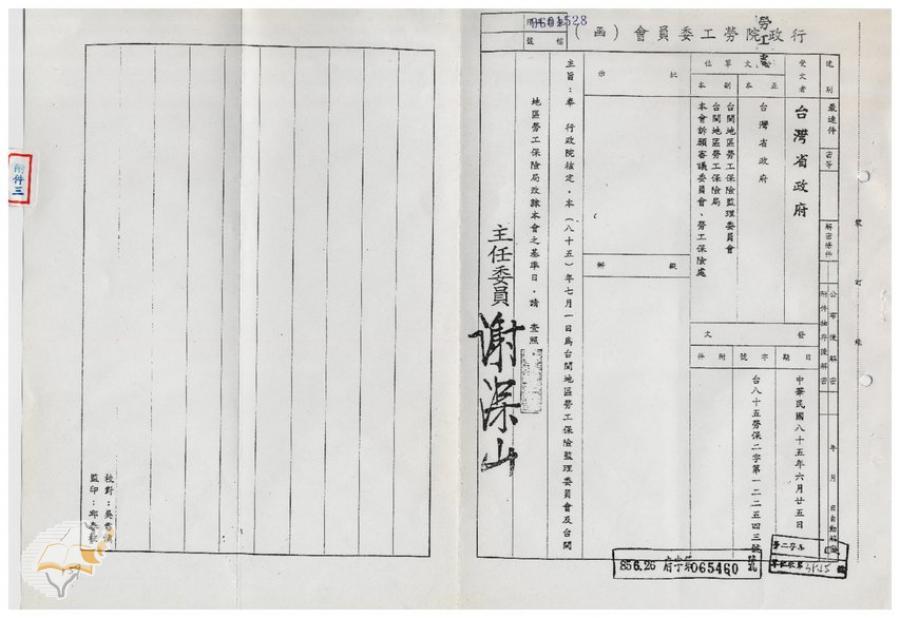 行政院勞工委員會（函）
勞工處
檔號
速別
最速件
密等
解密條件
公布後解密
附件抽存後解密
年 月 日自動解密
受文者
台灣省政府
行文單位
正本
台灣省政府
副本
台閩地區勞工保險監理委員會
台閩地區勞工保險局
本會訴願審議委員會、勞工保險處
發文
日期
中華民國八十五年六月廿五日
字號
台八十五勞保二字第一二二五四三號
附件
批示
擬辦
主旨：奉 行政院核定，本（八十五）年七月一日為台閩地區勞工保險監理委員會及台閩
地區勞工保險局改隸本會之基準日，請 查照。
主任委員 謝深山
裝訂線
856.26 府字第065460號
附件三
校對：吳
監印：邱